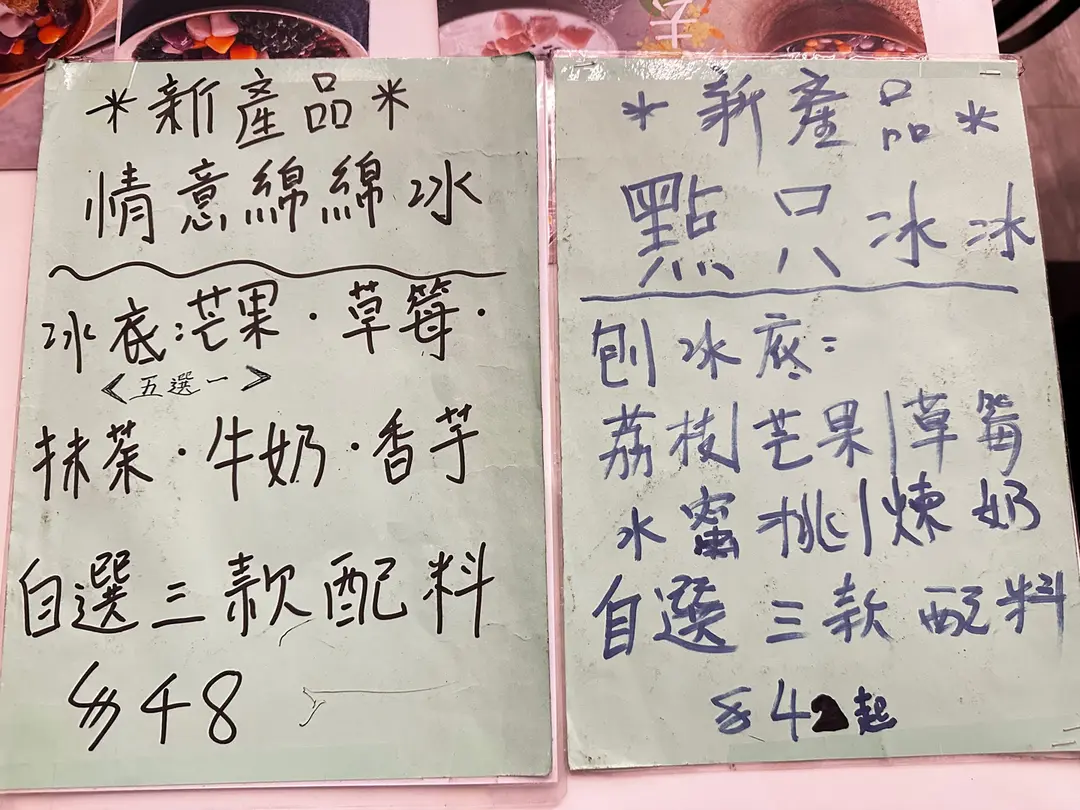 *新產品*
情意綿綿冰
冰底:芒果·草莓·
<五選一>
抹茶·牛奶·香芋
自選三款配料
$48
*新產品*
點只冰冰
刨冰底:
荔枝|芒果|草莓
水蜜桃|煉奶
自選三款配料
$42起